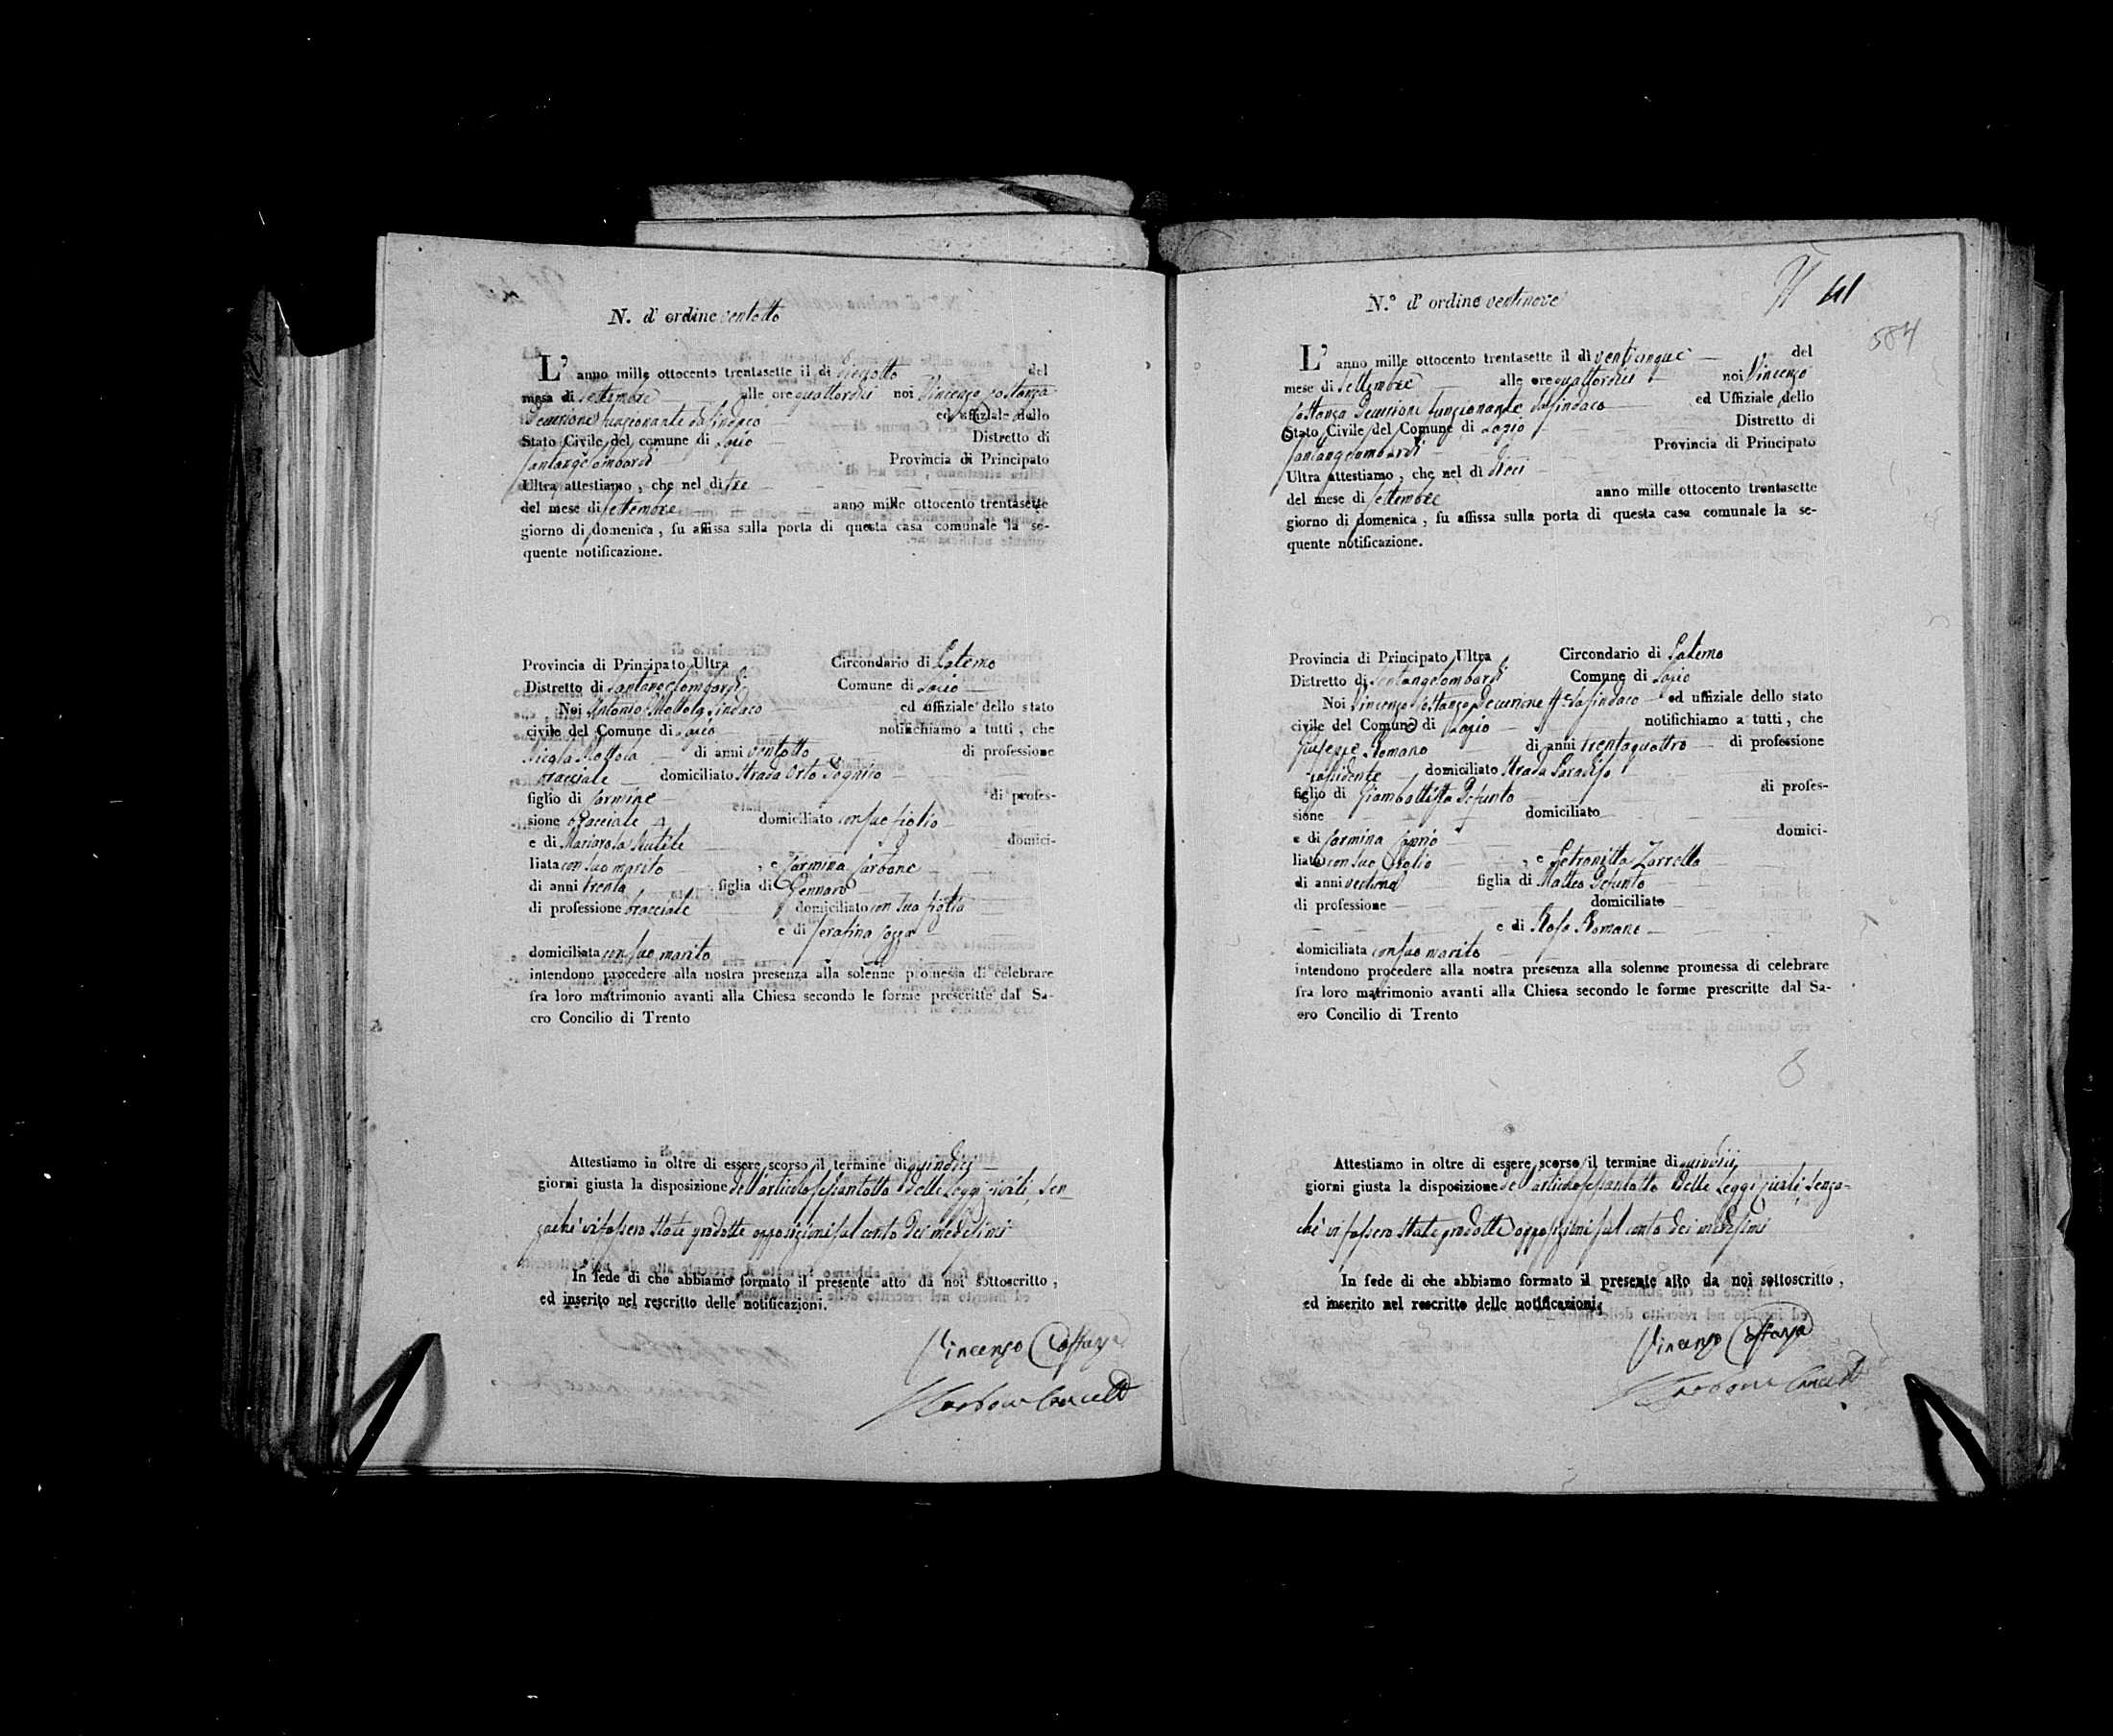 N. d' ordine ventotto
L' anno mille ottocento trentasette il di dieciotto del
mese di settembre alle ore quattordici noi Vincenzo Costanza
Decurione funzionante da Sindaco ed uffiziale dello
Stato Civile del comune di Lapio Distretto di
Santangelolombardi Provincia di Principato
Ultra attestiamo, che nel di tre
del mese di settembre anno mille ottocento trentasette
giorno di domenica, fu affissa sulla porta di questa casa comunale la se-
quente notificazione.
Provincia di Principato Ultra Circondario di Paterno
Distretto di Santangelolombardi Comune di Lapio
Noi Antonio Mottola Sindaco ed uffiziale dello stato
civile del Comune di Lapio notifichiamo a tutti, che
Nicola Mottola di anni ventotto di professione
bracciale domiciliato Strada Orto
figlio di Carmine di profes-
sione bracciale domiciliato con suo figlio
e di Mariarosa domici-
liata con suo marito , e Carmina Carbone
di anni trenta figlia di Gennaro
di professione bracciale domiciliato con sua figlia
e di Serafina
domiciliata con suo marito
intendono procedere alla nostra presenza alla solenne promessa di celebrare
fra loro matrimonio avanti alla Chiesa secondo le forme prescritte dal Sa-
cro Concilio di Trento
Attestiamo in oltre di essere scorso il termine di quindici
giorni giusta la disposizione dell'articolo sessantotto delle Leggi civili, sen-
zache vi fossero state prodotte opposizioni sul conto dei medesimi
In fede di che abbiamo formato il presente atto da noi sottoscritto,
ed inserito nel rescritto delle notificazioni.
Vincenzo Costanza
Carbone Cancell
41
584
N.º d' ordine ventinove
L' anno mille ottocento trentasette il dì venticinque del
mese di settembre alle ore quattordici noi Vincenzo
Costanza Decurione funzionante da Sindaco ed Uffiziale dello
Stato Civile del Comune di Lapio Distretto di
Santangelolombardi Provincia di Principato
Ultra attestiamo, che nel dì dieci
del mese di settembre anno mille ottocento trentasette
giorno di domenica, fu affissa sulla porta di questa casa comunale la se-
quente notificazione.
Provincia di Principato Ultra Circondario di Paterno
Distretto di Santangelolombardi Comune di Lapio
Noi Vincenzo Costanza Decurione ff.e da Sindaco ed uffiziale dello stato
civile del Comune di Lapio notifichiamo a tutti, che
Giuseppe Romano di anni trentaquattro di professione
possidente domiciliato Strada Paradiso
figlio di Giambattista Defunto di profes-
sione domiciliato
e di Carmina domici-
liata con suo figlio , e Petronilla Zarrella
di anni figlia di Matteo Defunto
di professione domiciliato
e di Rosa Romano
domiciliata con suo marito
intendono procedere alla nostra presenza alla solenne promessa di celebrare
fra loro matrimonio avanti alla Chiesa secondo le forme prescritte dal Sa-
cro Concilio di Trento
Attestiamo in oltre di essere scorso il termine di quindici
giorni giusta la disposizione dell'articolo sessantotto delle Leggi civili, senza-
che vi fossero state prodotte opposizioni sul conto dei medesimi
In fede di che abbiamo formato il presente atto da noi sottoscritto,
ed inserito nel rescritto delle notificazioni.
Vincenzo Costanza
Carbone Cancell